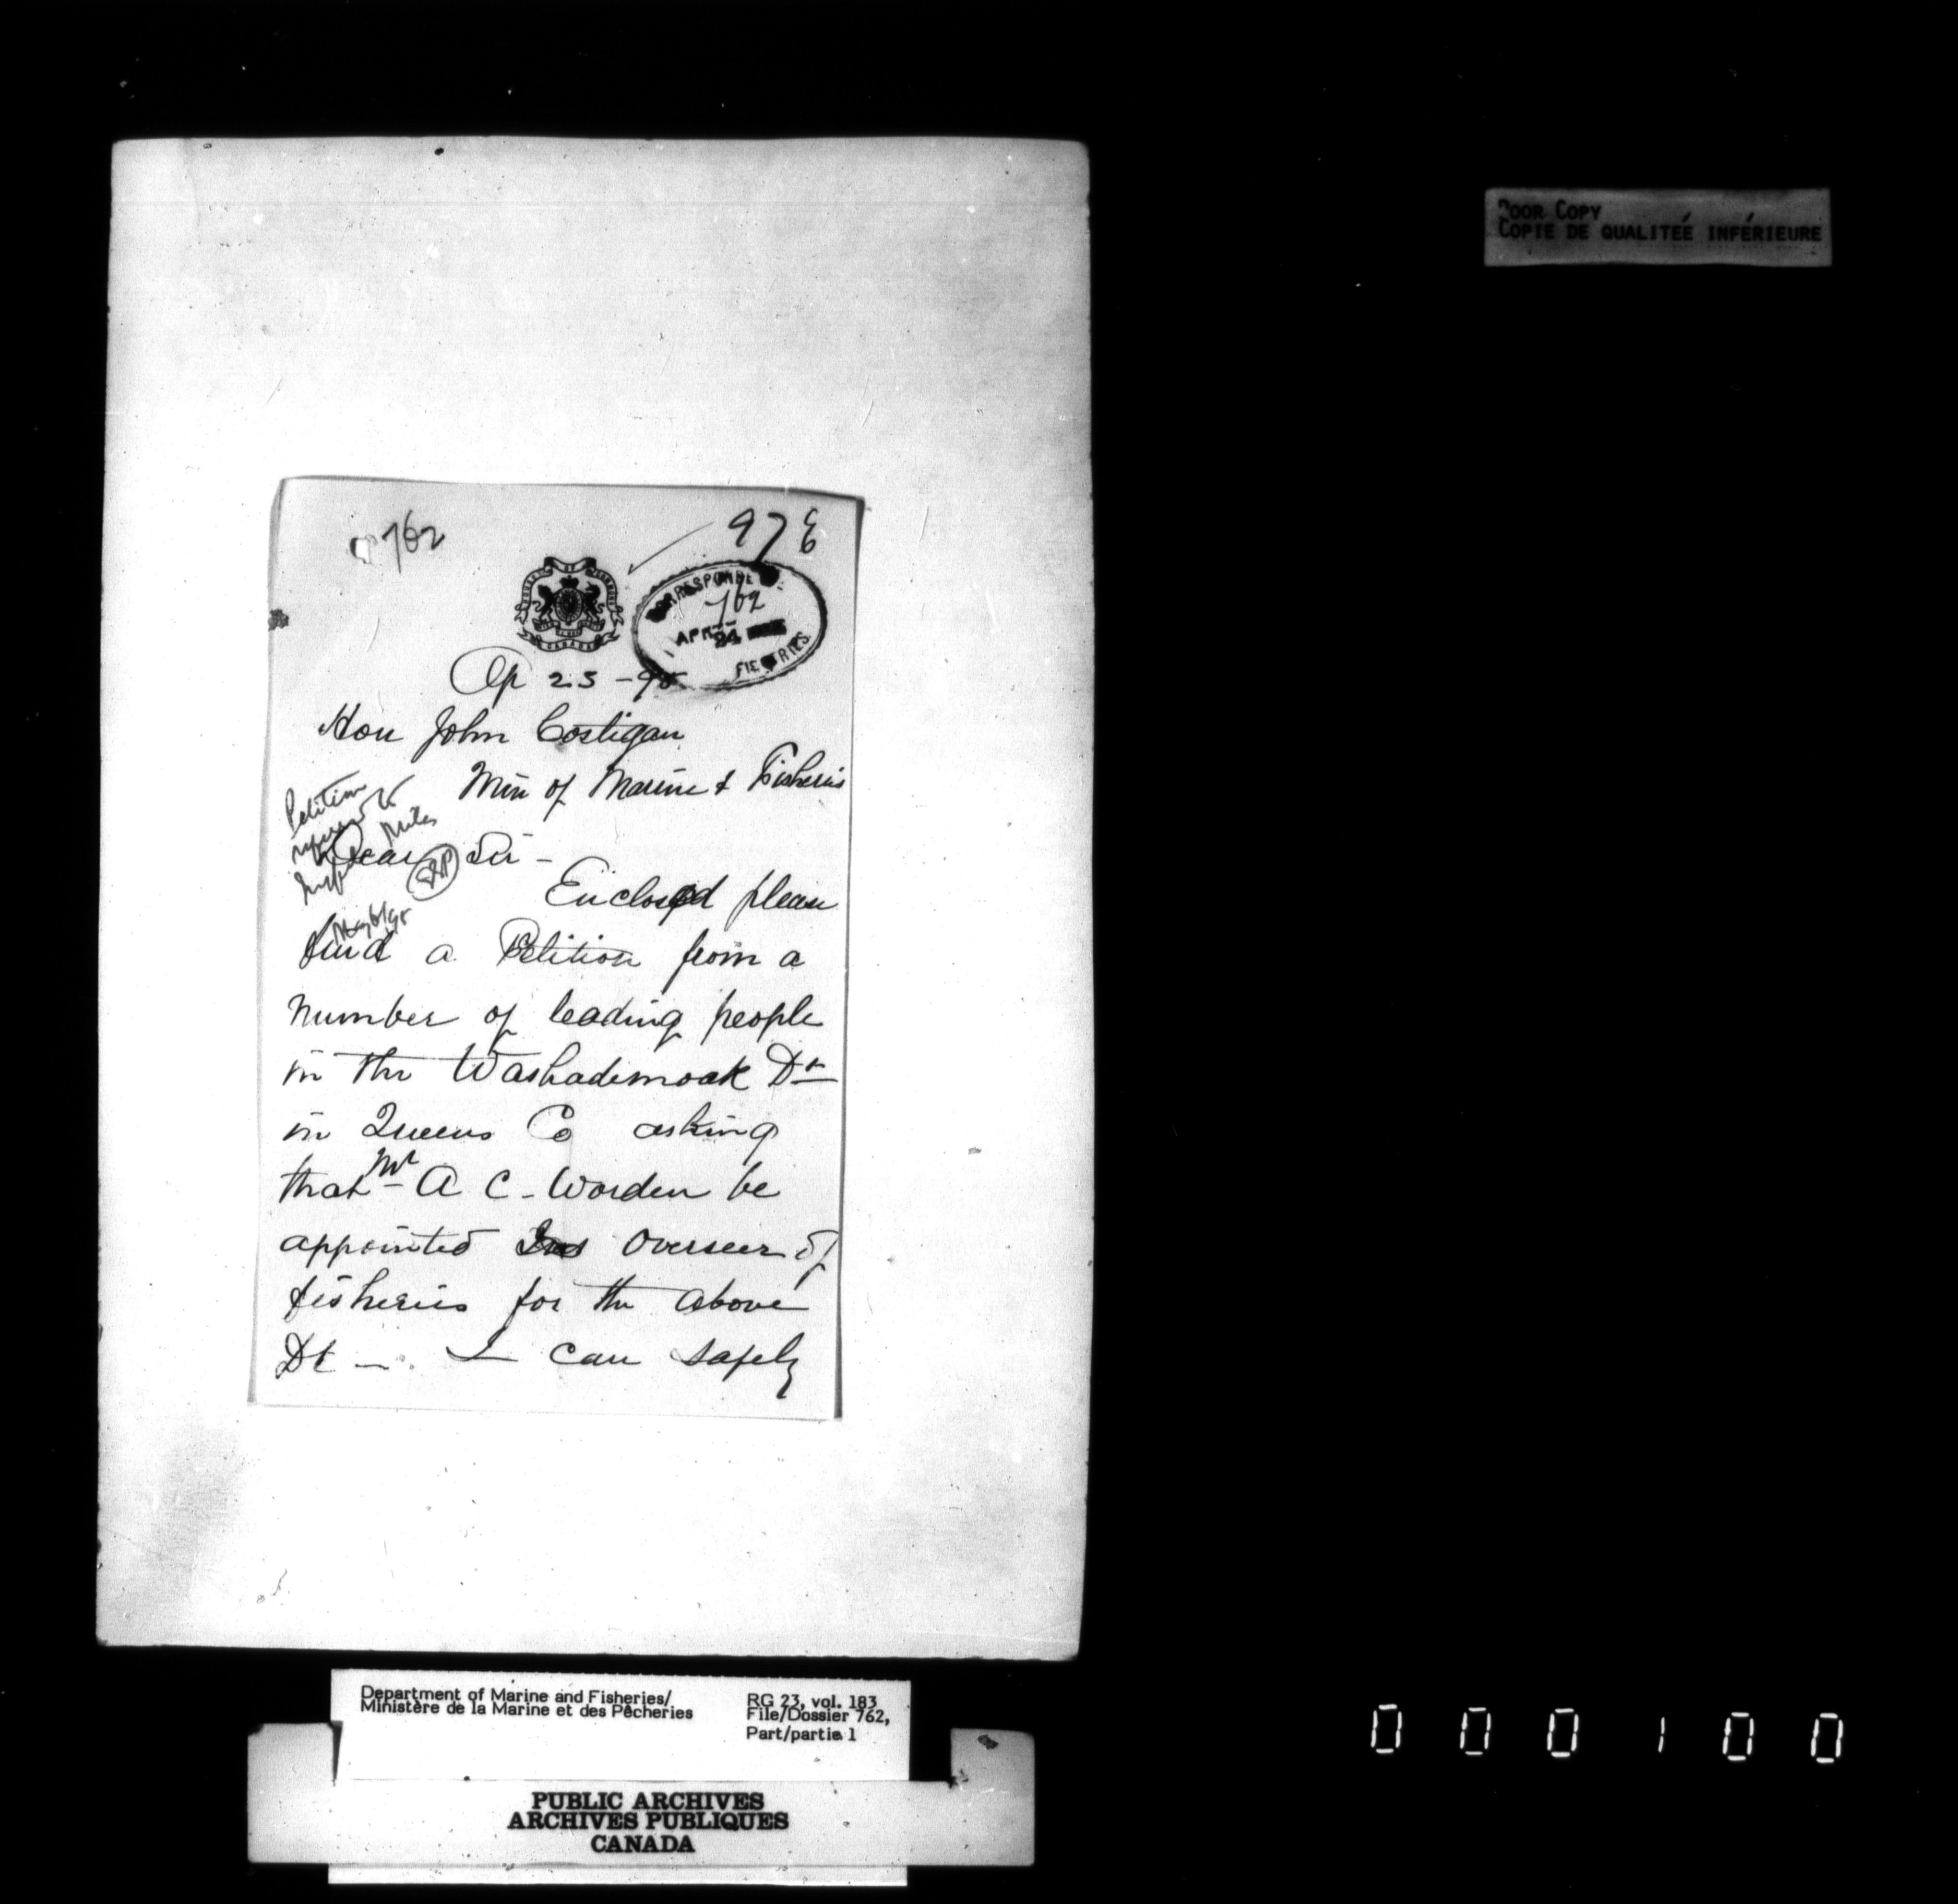 POOR COPY
COPIE DE QUALITEÉ INFÉRIEURE
762
978
HOUSE OF COMMONS
CANADA
CORRESPONDE
762
APR 24
FISHERIES
Ap 25 - 95
Hon John Costigan
Min of Marine & Fisheries
Petition
Dear Sir -
Enclosed please
find a Petition from a
number of leading people
in the Washademoak Dt
in Queens Co asking
that Mr A C - Worden be
appointed Overseer of
fisheries for the above
Dt - I can safely
Department of Marine and Fisheries/
Ministère de la Marine et des Pêcheries
RG 23, vol. 183
File/Dossier 762,
Part/partie 1
PUBLIC ARCHIVES
ARCHIVES PUBLIQUES
CANADA
000100